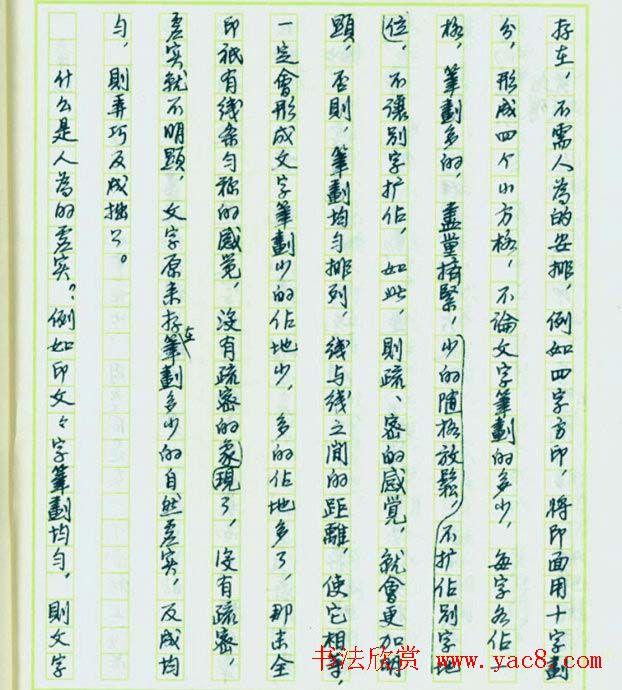 存在，不需人為的安排，例如四字方印，将印面用十字劃
分，形成四个小方格，不論文字筆劃的多少，每字各佔一
格，筆劃多的，盡量擠緊，少的随格放鬆，不扩佔别字地
位，不讓别字扩佔，如此，則疏、密的感觉，就會更加明
顕，否則，筆劃均匀排列，线与线之间的距離，使它相等，
一定會形成文字筆劃少的佔地少，多的佔地多了，那末全
印祇有线条匀称的感觉，沒有疏密的象現了，沒有疏密，
虚实就不明顕，文字原来存在筆劃多少的自然虚实，反成均
匀，則弄巧反成拙了。
什么是人為的虚实？例如印文々字筆劃均匀，則文字
书法欣赏 www.yac8.com